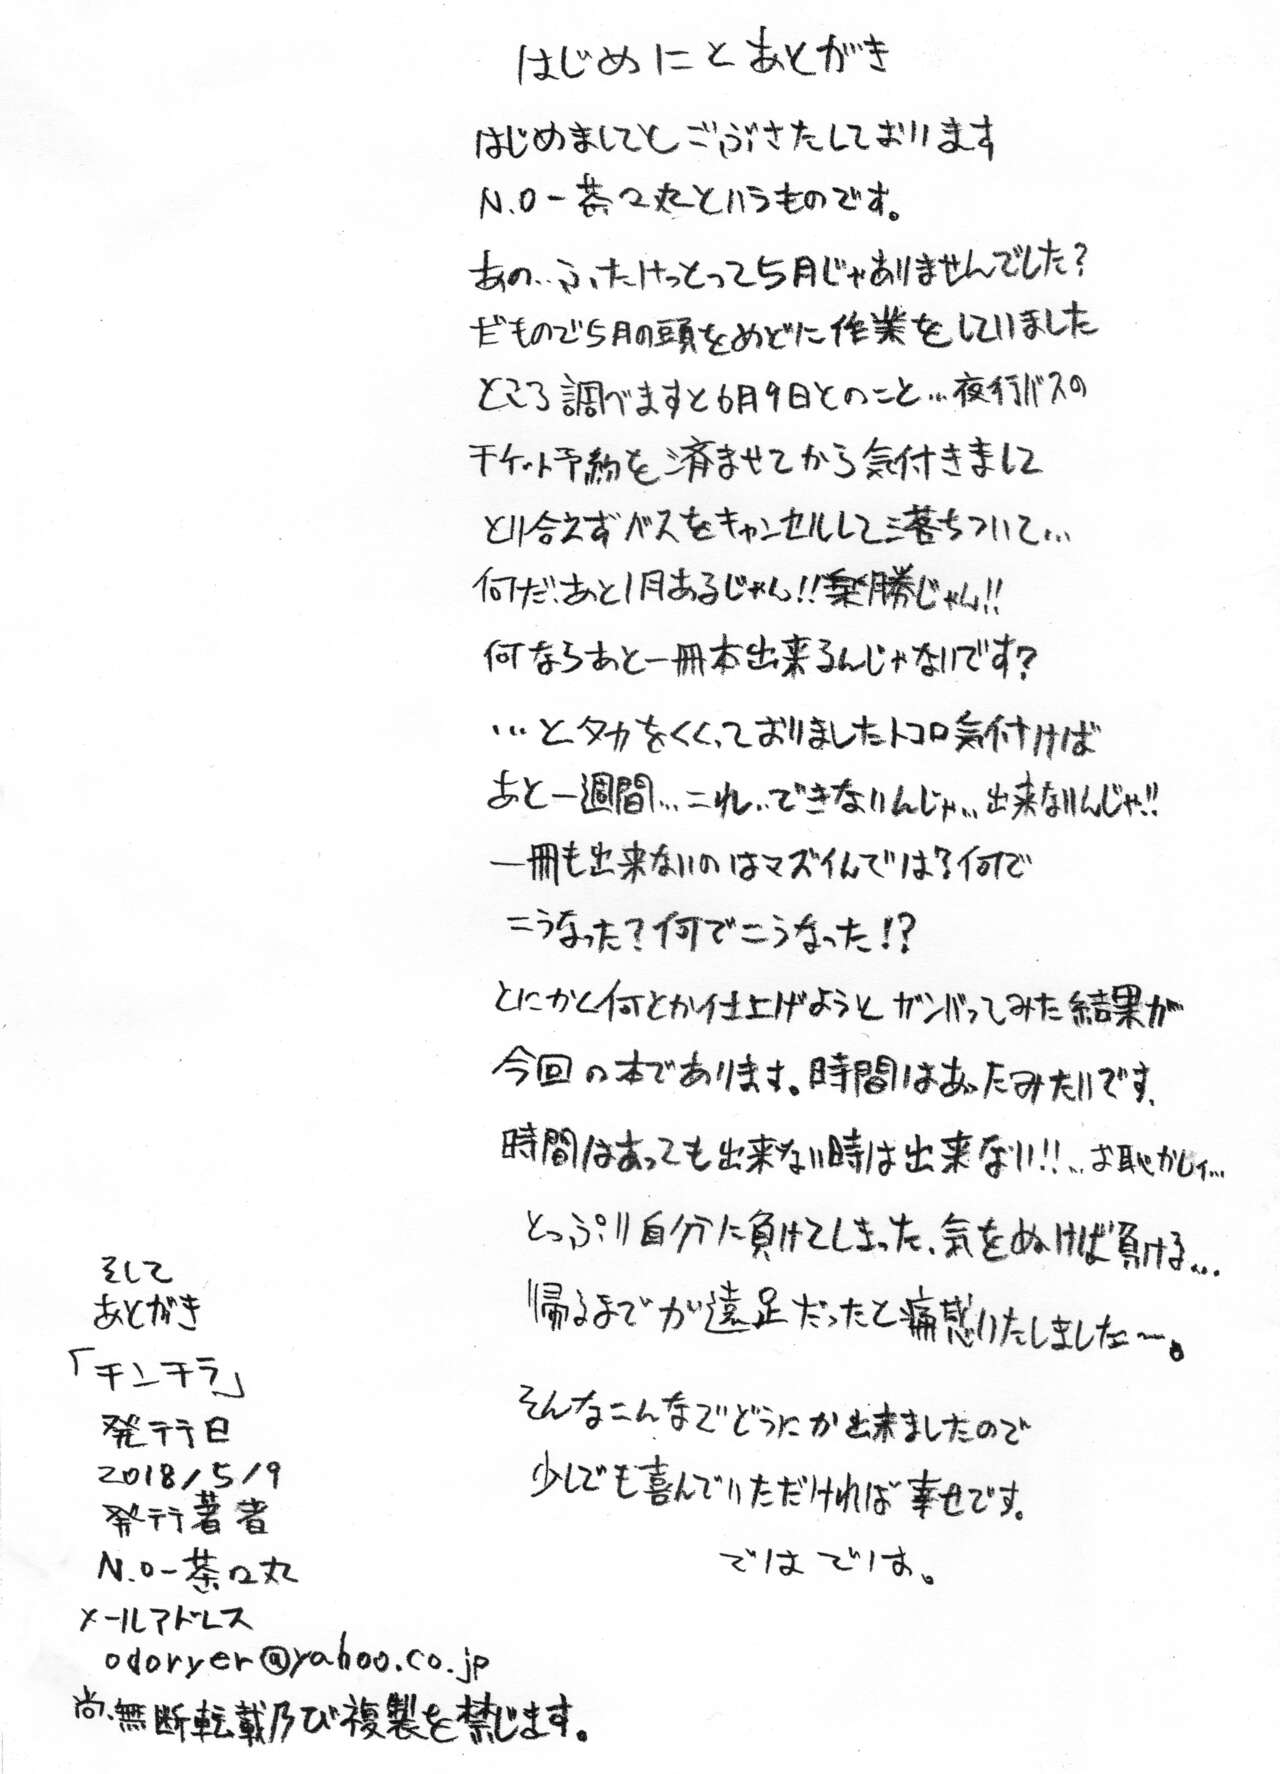 はじめに と あとがき
はじめましてと ごぶさたしております
N.O-茶々丸というものです。
あの…ふたけっとって5月じゃありませんでした?
だもので5月の頭をめどに作業をしていました
ところ調べますと6月9日とのこと…夜行バスの
チケット予約を済ませてから気付きまして
とり合えずバスをキャンセルして落ちついて…
何だ、あと1月あるじゃん!!楽勝じゃん!!
何ならあと一冊本出来るんじゃないです?
…と、タカをくくっておりましたトコロ気付けば
あと一週間…これ…できないんじゃ…出来ないんじゃ!!
一冊も出来ないのはマズイんでは?何で
こうなった?何でこうなった!?
とにかく何とか仕上げようとガンバってみた結果が
今回の本であります。時間はあったみたいです、
時間はあっても出来ない時は出来ない!!…お恥かしい…
とっぷり自分に負けてしまった、気をぬけば負ける…
帰るまでが遠足だったと痛感いたしました〜。
そんなこんなでどうにか出来ましたので
少しでも喜んでいただければ幸せです。
では では。
そして
あとがき
「チンチラ」
発行日
2018/5/9
発行著者
N.O-茶々丸
メールアドレス
odoryer@yahoo.co.jp
尚、無断転載乃び複製を禁じます。